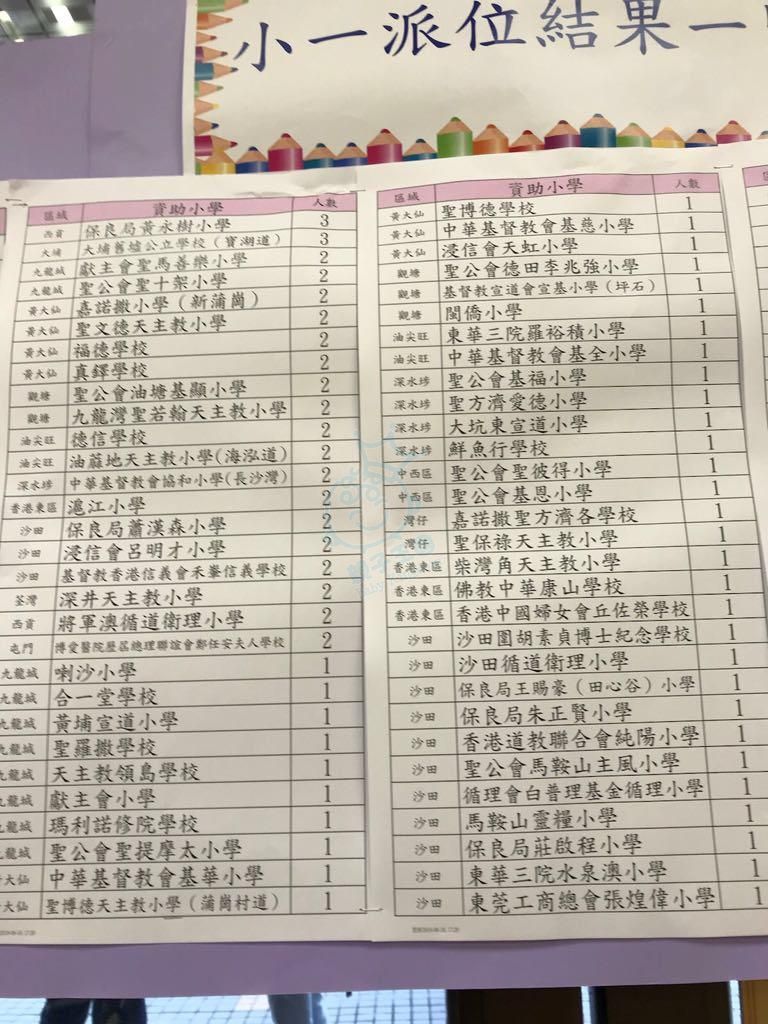 小一派位結果一
區域 資助小學 人數
西貢 保良局黃永樹小學 3
大埔 大埔舊墟公立學校（寶湖道） 3
九龍城 獻主會聖馬善樂小學 2
九龍城 聖公會聖十架小學 2
黃大仙 嘉諾撒小學（新蒲崗） 2
黃大仙 聖文德天主教小學 2
黃大仙 福德學校 2
黃大仙 真鐸學校 2
觀塘 聖公會油塘基顯小學 2
觀塘 九龍灣聖若翰天主教小學 2
油尖旺 德信學校 2
油尖旺 油蔴地天主教小學(海泓道) 2
深水埗 中華基督教會協和小學(長沙灣) 2
香港東區 滬江小學 2
沙田 保良局蕭漢森小學 2
沙田 浸信會呂明才小學 2
沙田 基督教香港信義會禾輋信義學校 2
荃灣 深井天主教小學 2
西貢 將軍澳循道衛理小學 2
屯門 博愛醫院歷屆總理聯誼會鄭任安夫人學校 2
九龍城 喇沙小學 1
九龍城 合一堂學校 1
九龍城 黃埔宣道小學 1
九龍城 聖羅撒學校 1
九龍城 天主教領島學校 1
九龍城 獻主會小學 1
九龍城 瑪利諾修院學校 1
九龍城 聖公會聖提摩太小學 1
大仙 中華基督教會基華小學 1
大仙 聖博德天主教小學（蒲崗村道） 1
區域 資助小學 人數
黃大仙 聖博德學校 1
黃大仙 中華基督教會基慈小學 1
黃大仙 浸信會天虹小學 1
觀塘 聖公會德田李兆強小學 1
觀塘 基督教宣道會宣基小學（坪石） 1
觀塘 閩僑小學 1
油尖旺 東華三院羅裕積小學 1
油尖旺 中華基督教會基全小學 1
深水埗 聖公會基福小學 1
深水埗 聖方濟愛德小學 1
深水埗 大坑東宣道小學 1
深水埗 鮮魚行學校 1
中西區 聖公會聖彼得小學 1
中西區 聖公會基恩小學 1
灣仔 嘉諾撒聖方濟各學校 1
灣仔 聖保祿天主教小學 1
香港東區 柴灣角天主教小學 1
香港東區 佛教中華康山學校 1
香港東區 香港中國婦女會丘佐榮學校 1
沙田 沙田圍胡素貞博士紀念學校 1
沙田 沙田循道衛理小學 1
沙田 保良局王賜豪（田心谷）小學 1
沙田 保良局朱正賢小學 1
沙田 香港道教聯合會純陽小學 1
沙田 聖公會馬鞍山主風小學 1
沙田 循理會白普理基金循理小學 1
沙田 馬鞍山靈糧小學 1
沙田 保良局莊啟程小學 1
沙田 東華三院水泉澳小學 1
沙田 東莞工商總會張煌偉小學 1